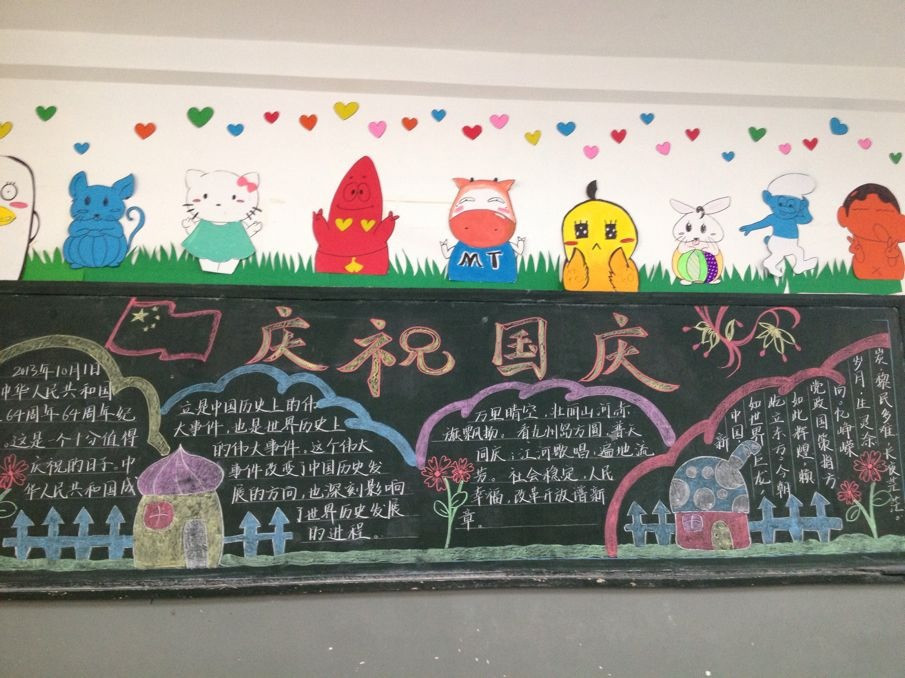 MT
庆祝国庆
2013年10月1日
中华人民共和国
64周年64周年纪
这是一个十分值得
庆祝的日子。中
华人民共和国成
立是中国历史上的伟
大事件,也是世界历史上
的伟大事件。这个伟大
事件改变了中国历史发
展的方向,也深刻影响
了世界历史发展
的进程。
万里晴空,壮丽山河赤
旗飘扬。看九州岛方圆,普天
同庆;江河歌唱,遍地流
芳。社会稳定,人民
幸福,改革开放谱新
章。
岁月
回忆峥嵘
党政国策指方
如此辉煌
屹立东方今朝
如世界巨龙
中国